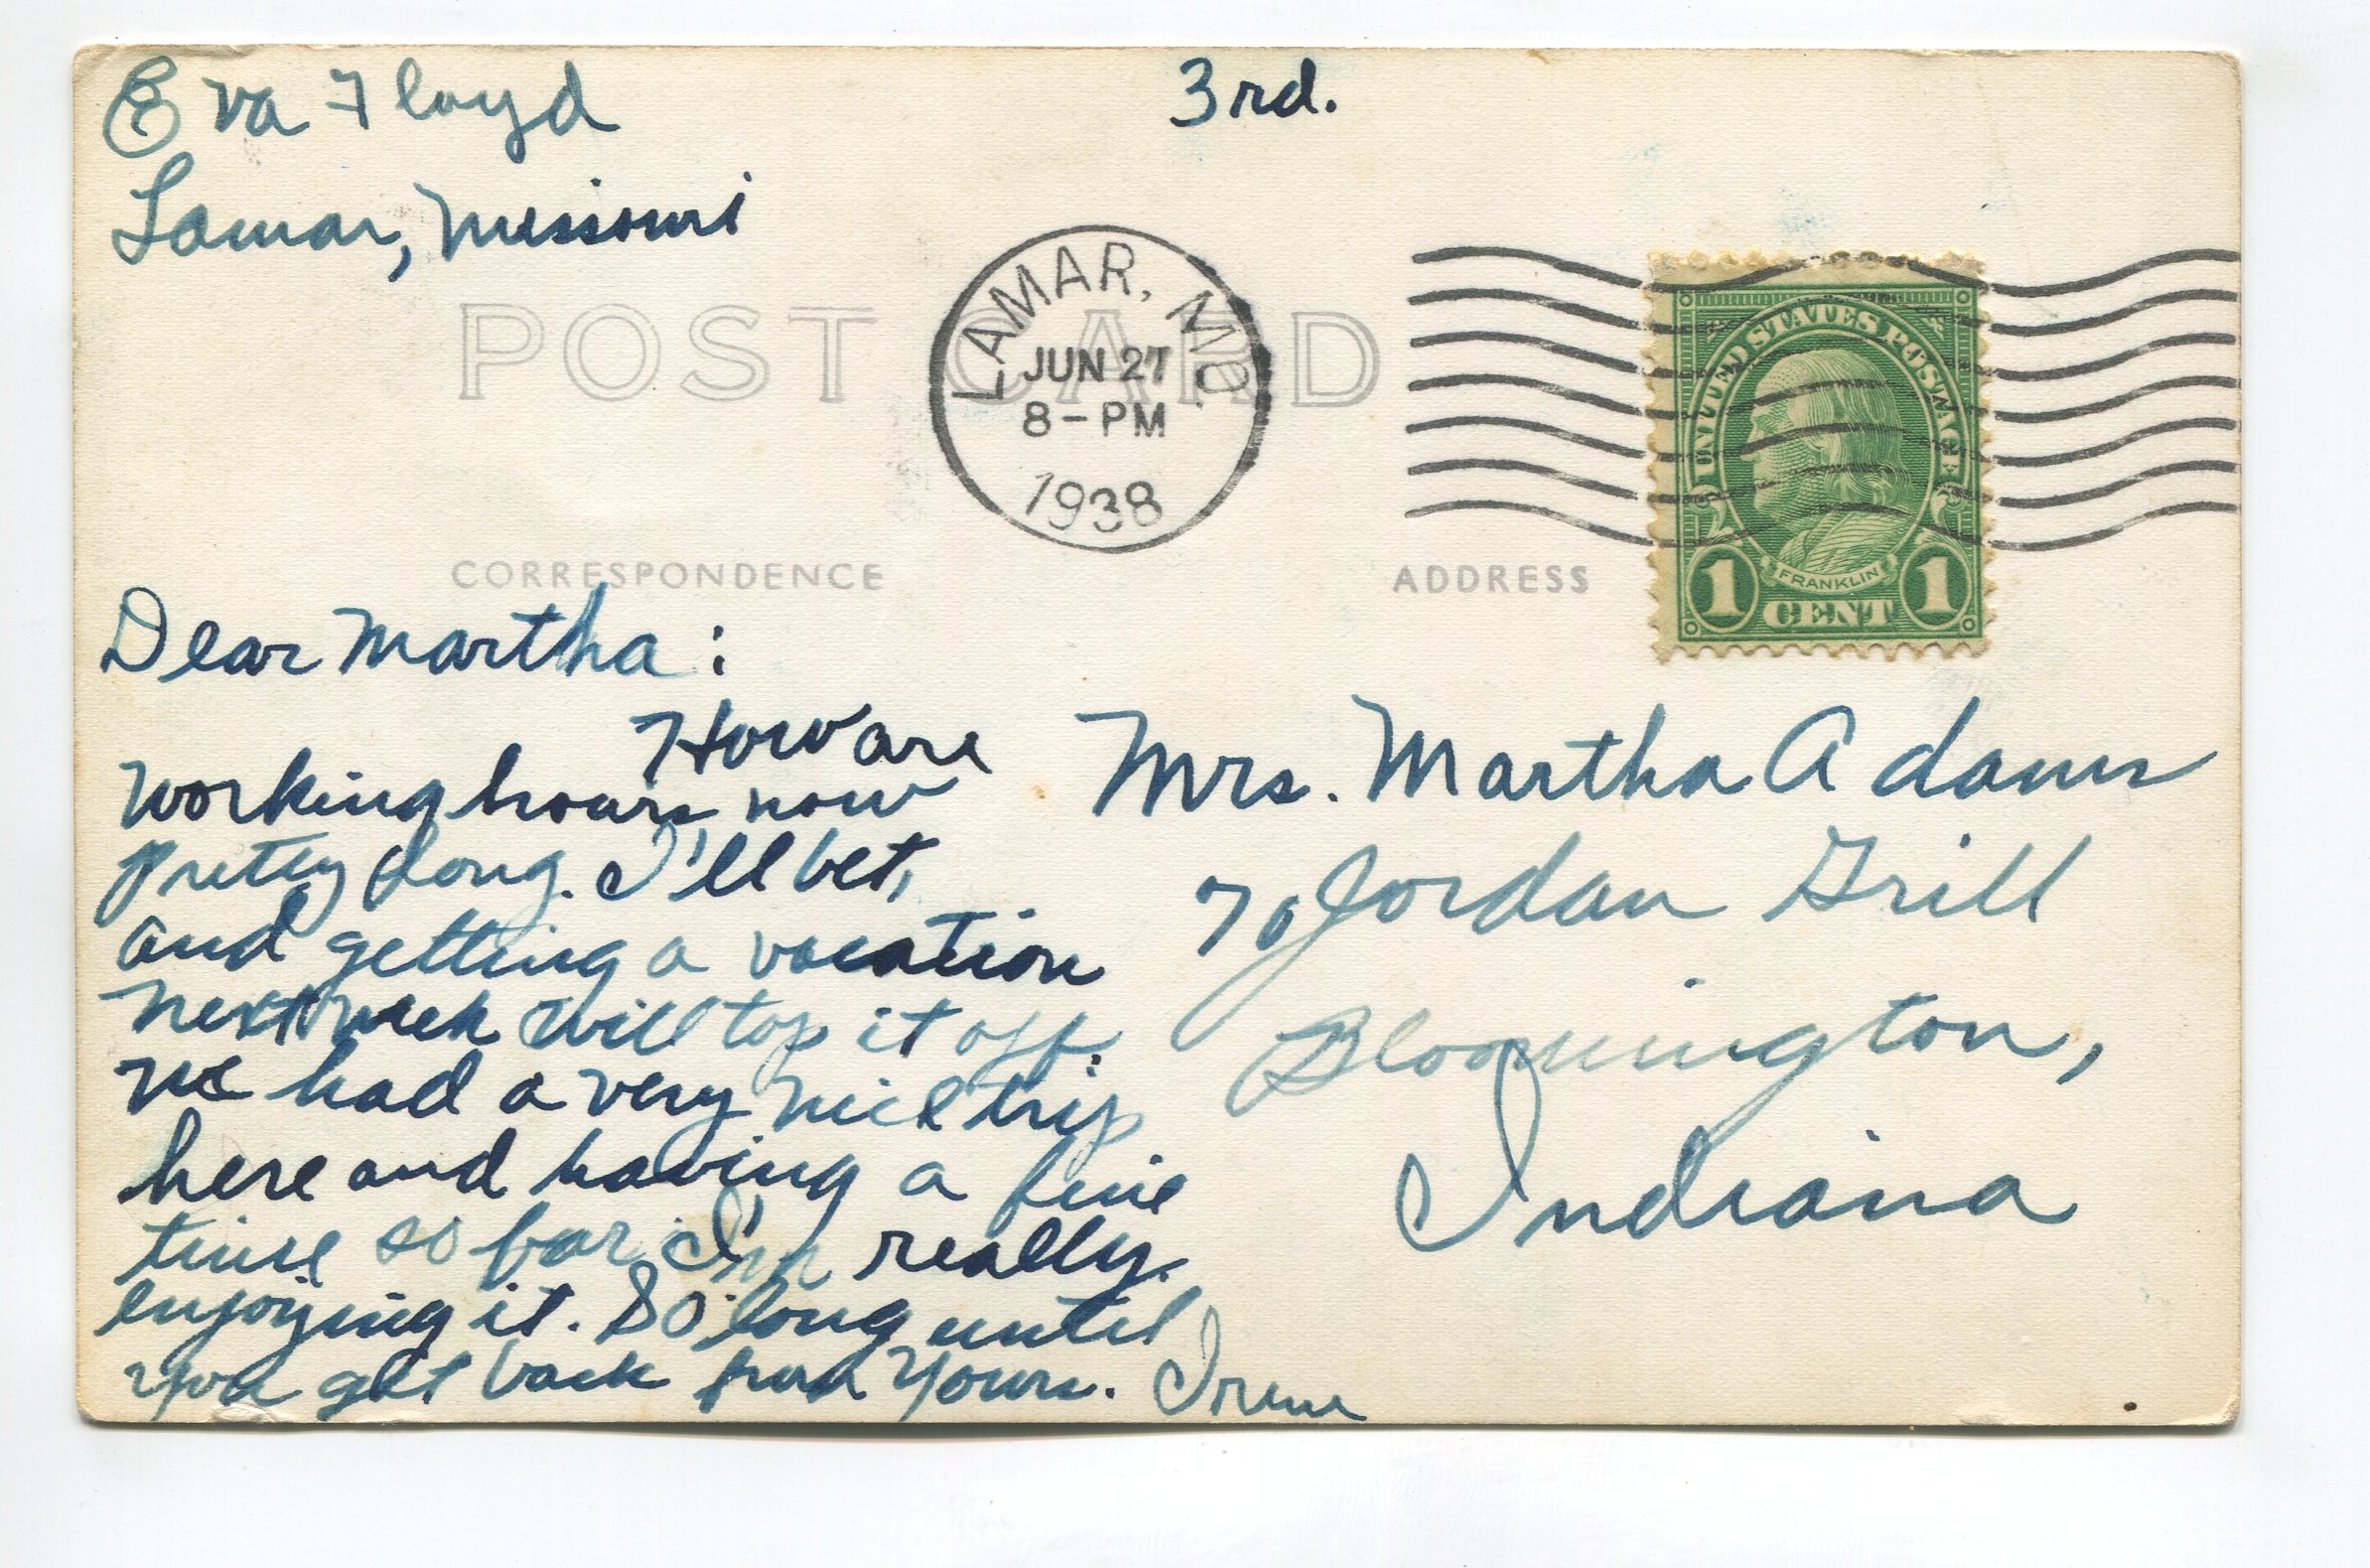 Eva Floyd
3rd.
Lamar, Missouri
POST CARD
LAMAR, MO.
JUN 27
8-PM
1938
UNITED STATES POSTAGE
FRANKLIN
1 CENT 1
CORRESPONDENCE
ADDRESS
Dear Martha:
How are
working hours now
pretty long. I'll bet,
and getting a vacation
next week will top it off.
We had a very nice trip
here and having a fine
time so far. I'm really
enjoying it. So long until
you get back from yours. Irene
Mrs. Martha Adams
% Jordan Grill
Bloomington,
Indiana